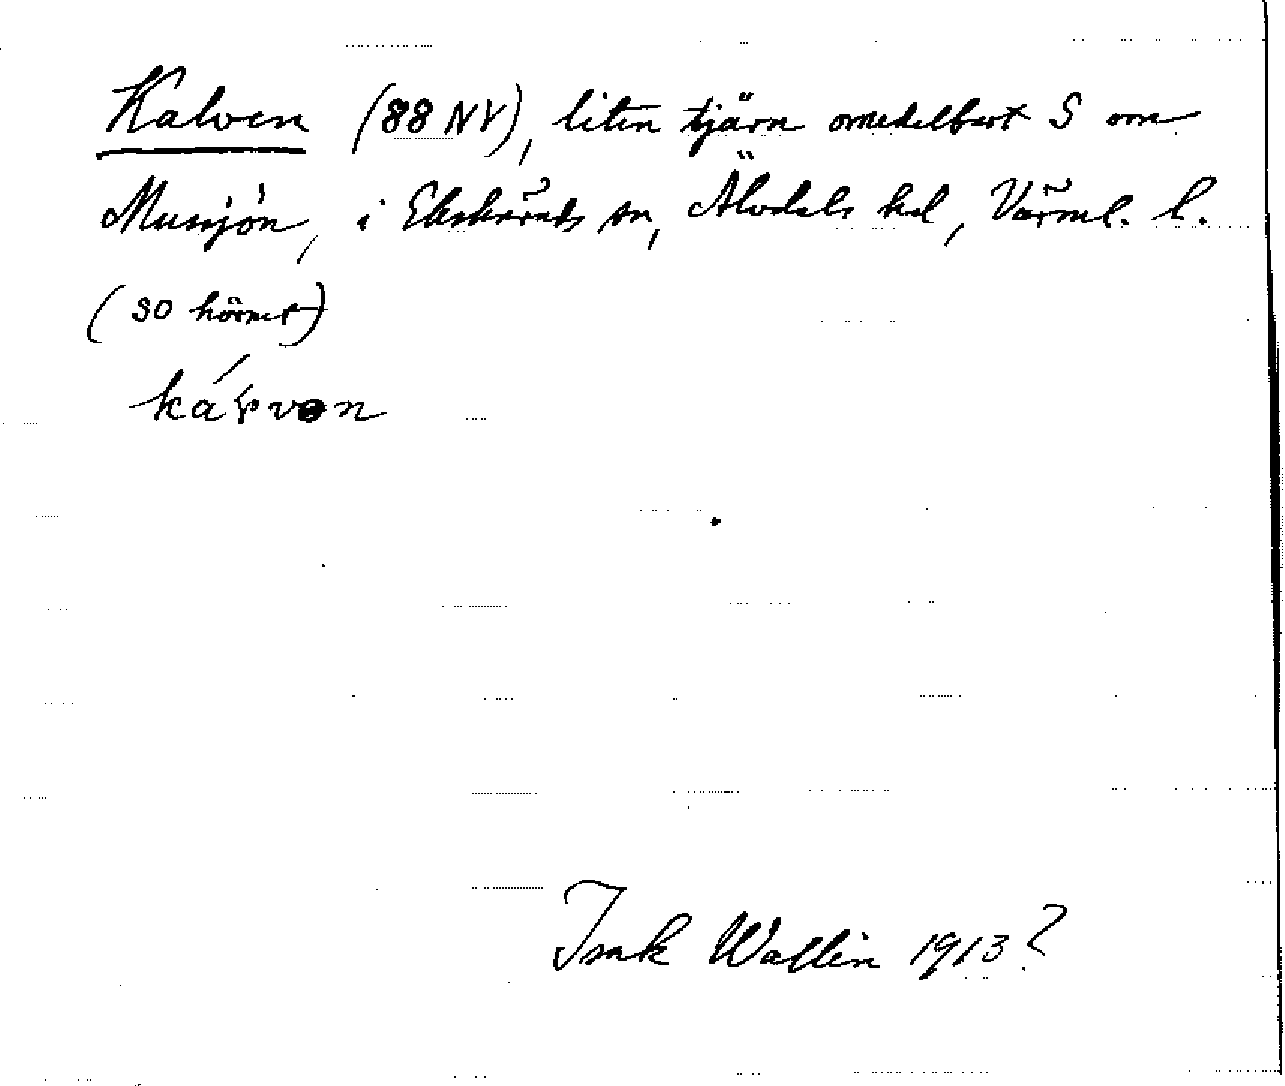 Kalven (88 NV), liten tjärn omedelbart S om
Musjön, i Ekshärads sn, Älvdals hd, Värml. l.
(SO hörnet)
Isak Wallin 1913?